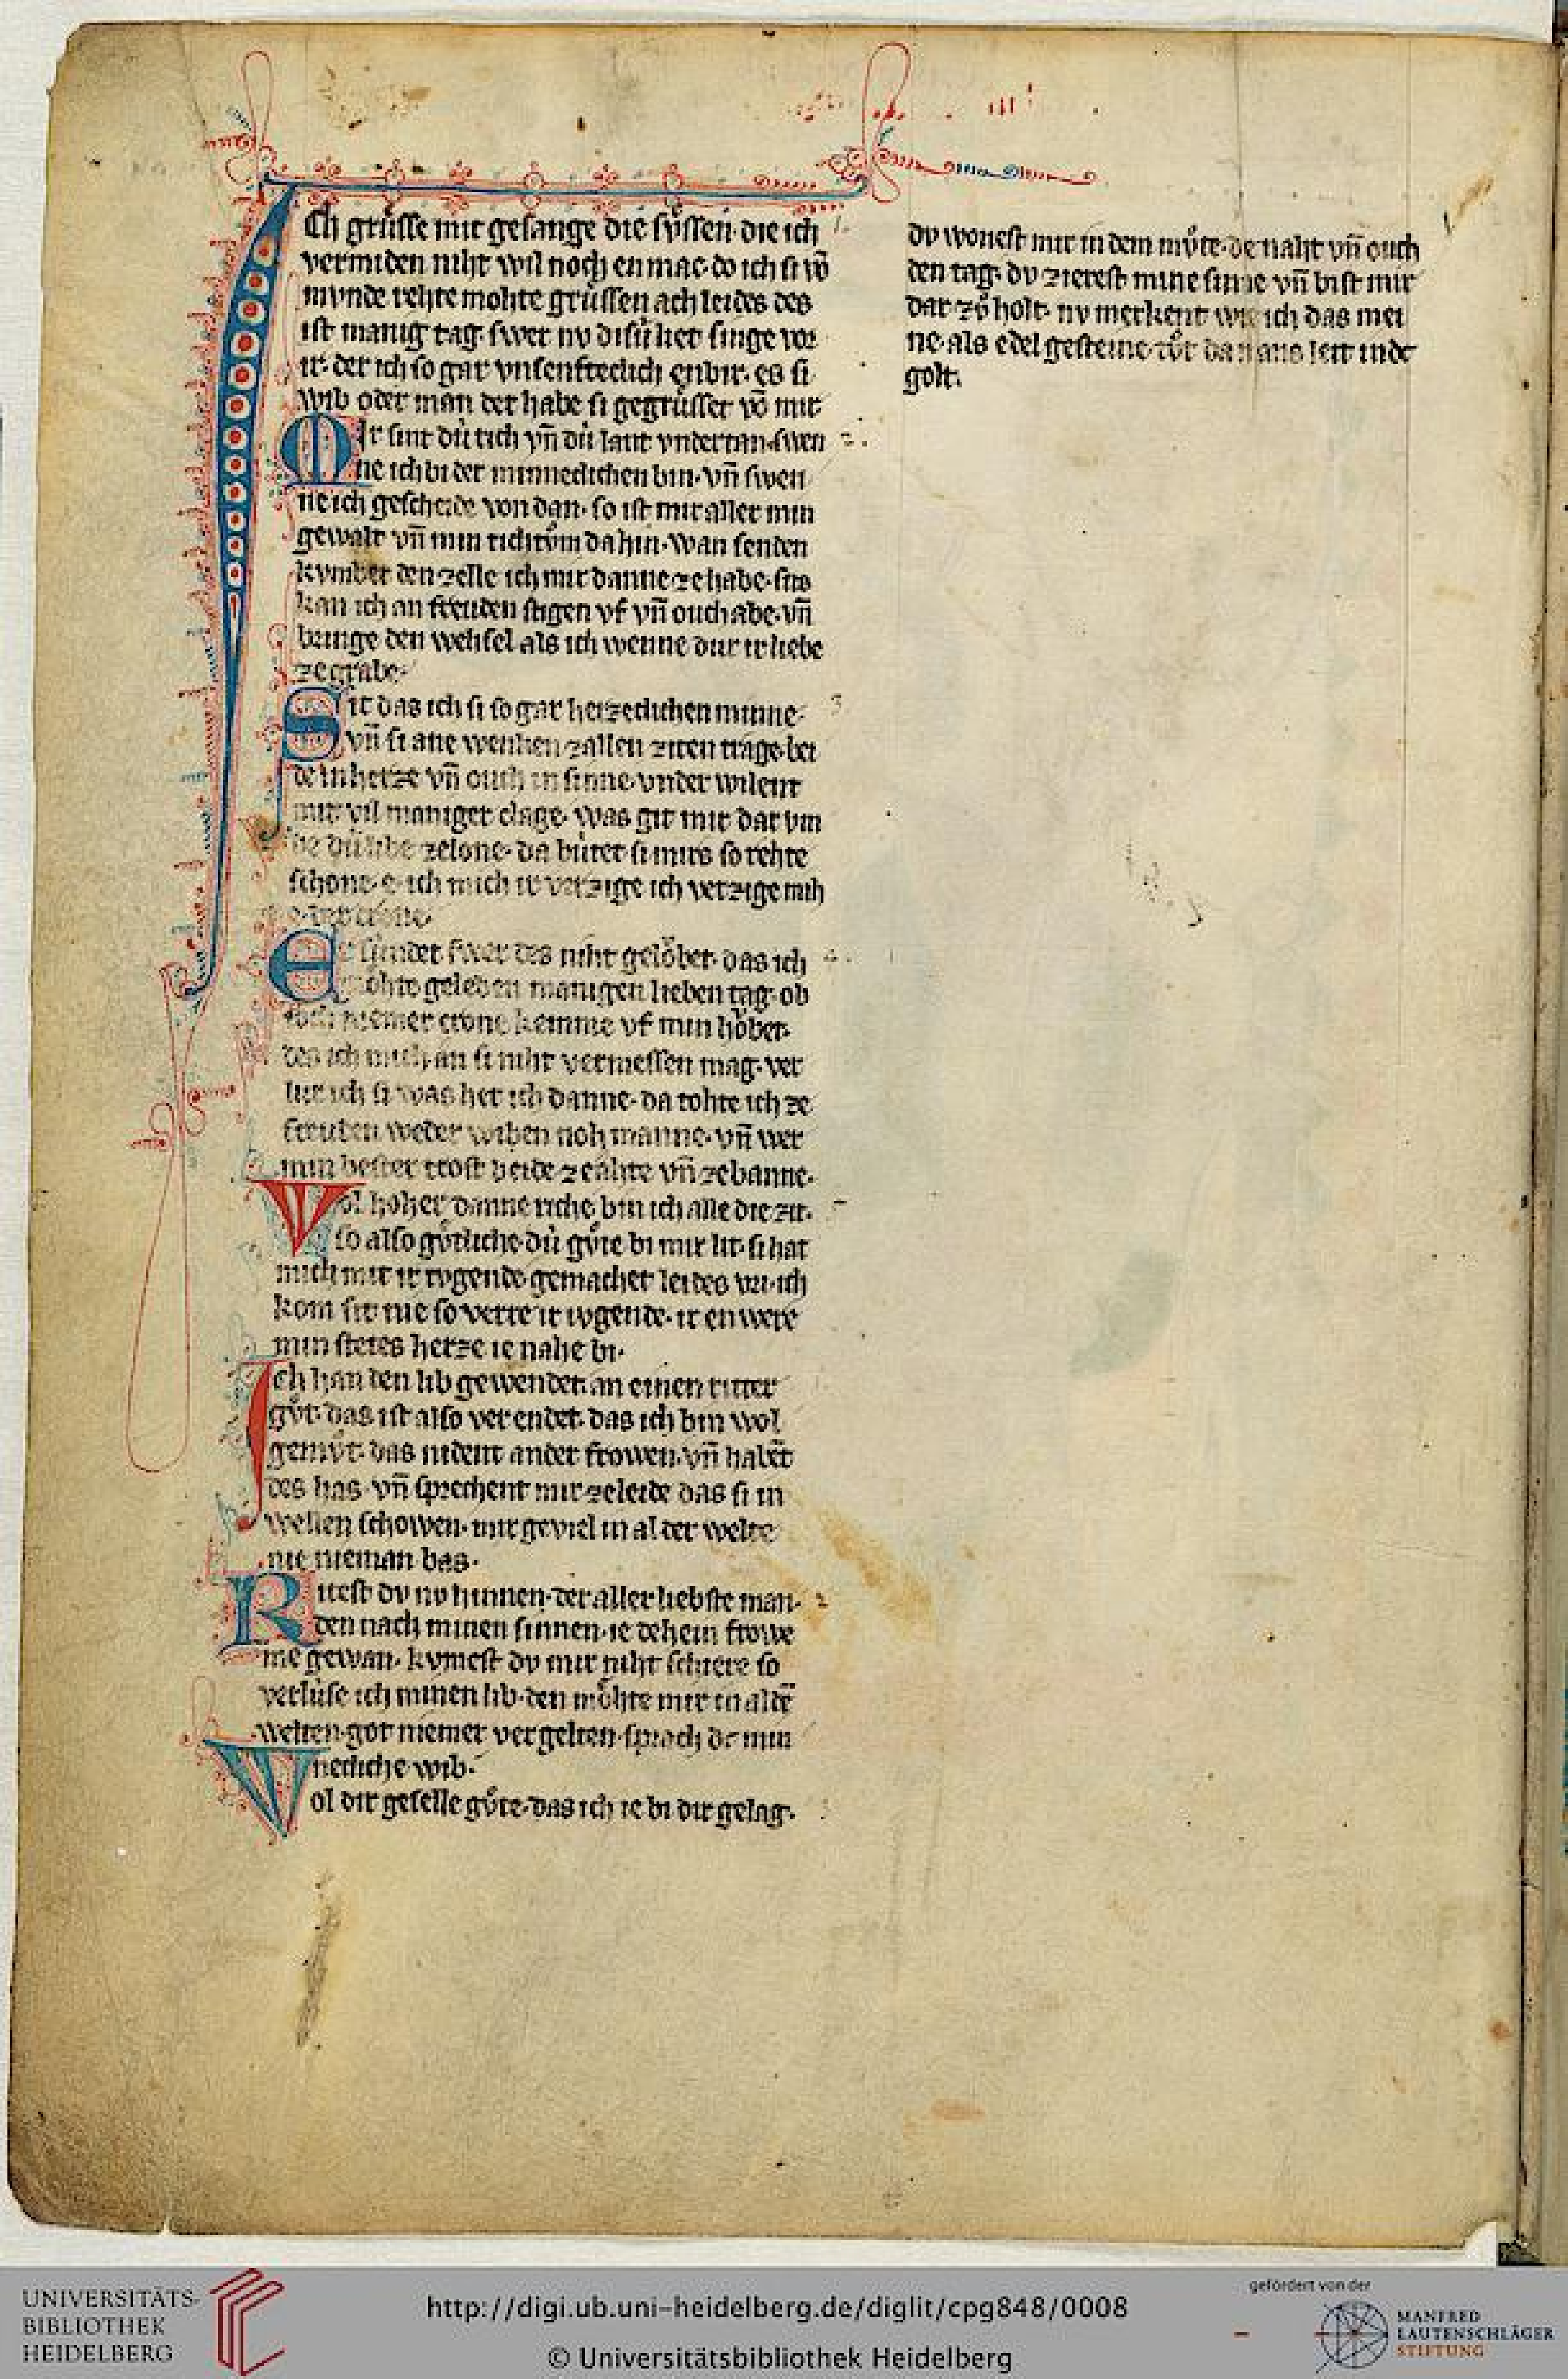 Ich grůsse mit gesange die sv̊ssen. die ich
vermiden niht wil noch en mac. do ich si võ
mvnde rehte mohte grůssen ach leides des
ist manig tag. swer nv disiv liet singe vor
ir. der ich so gar vnsenfteclich enbir. es si
wib oder man der habe si gegrůsset võ mir.
Mir sint dů rich vñ dů lant vndertan. swen
ne ich bi der minneclichen bin. vñ swen
ne ich gescheide von dan. so ist mir aller min
gewalt vñ min richtům da hin. wan senden
kvmber den zelle ich mir danne ze habe. sus
kan ich an freuden stigen vf vñ ouch abe. vñ
bringe den wehsel als ich wenne dur ir liebe
ze grabe.
Sit das ich si so gar herzeclichen minne.
vñ si ane wenken zallen ziten trage. bei
de in herze vñ ouch in sinne. vnder wilent
mit vil maniger clage. was git mir dar vm
be dů liebe ze lone. da bůtet si mirs so rehte
schone. e ich mich ir verzige ich verzige mih
e der crone.
Er sůndet swer des niht gelöbet. das ich
möhte geleben manigen lieben tag. ob
ioch niemer crone keme vf min höbet.
des ich mich an si niht vermessen mag. ver
lur ich si was het ich danne. da tohte ich ze
freuden weder wiben noh manne. vñ wer
min bester trost beide ze ahte vñ ze banne.
Wol hoher danne riche bin ich alle die zit.
so also gv̊tliche dů gv̊te bi mir lit. si hat
mich mit ir tvgende gemachet leides vri. ich
kom sit nie so verre ir ivgende. ir en were
min stetes herze ie nahe bi.
Ich han den lib gewendet. an einen ritter
gv̊t. das ist also verendet. das ich bin wol
gemv̊t. das nident ander frowen. vñ habẽt
des has. vñ sprechent mir ze leide das si in
wellen schowen. mir geviel in al der welte
nie nieman bas.
Ritest dv nv hinnen. der aller liebste man.
den nach minen sinnen. ie dehein frowe
me gewan. kvmest dv mir niht schiere so
verlůse ich minen lib. den möhte mir in al dẽ
welten got niemer vergelten. sprach dc min
necliche wib.
Wol dir geselle gv̊te. das ich ie bi dir gelag.
dv wonest mir in dem mv̊te. de naht vñ ouch
den tag. dv zierest mine sinne vñ bist mir
dar zů holt. nv merkent wie ich das mei
ne. als edel gesteine. tůt da man es leit in dc
golt.
UNIVERSITÄTS-
BIBLIOTHEK
HEIDELBERG
http://digi.ub.uni-heidelberg.de/diglit/cpg848/0008
© Universitätsbibliothek Heidelberg
gefördert von der
MANFRED
LAUTENSCHLÄGER
STIFTUNG